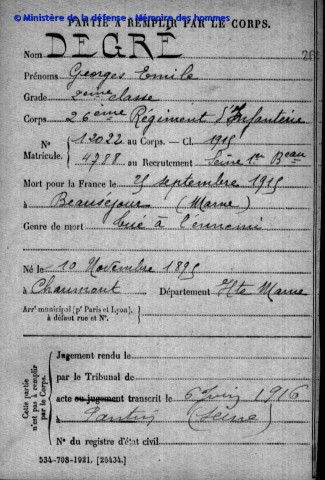 © Ministère de la défense - Mémoire des hommes
PARTIE A REMPLIR PAR LE CORPS.
Nom DEGRÉ
Prénoms Georges Emile
Grade 2ème classe
Corps 26ème Régiment d'Infanterie
N° 12022 au Corps. — Cl. 1915
Matricule. 4788 au Recrutement Seine 1er Beau
Mort pour la France le 25 septembre 1915
à Beauséjour (Marne)
Genre de mort tué à l'ennemi
Né le 10 Novembre 1895
à Chaumont Département Hte Marne
Arrt municipal (pr Paris et Lyon), à défaut rue et N°.
Jugement rendu le
par le Tribunal de
acte ou jugement transcrit le 6 Juin 1916
à Pantin (Seine)
N° du registre d'état civil
Cette partie n'est pas à remplir par le Corps.
534-708-1921. [26434.]